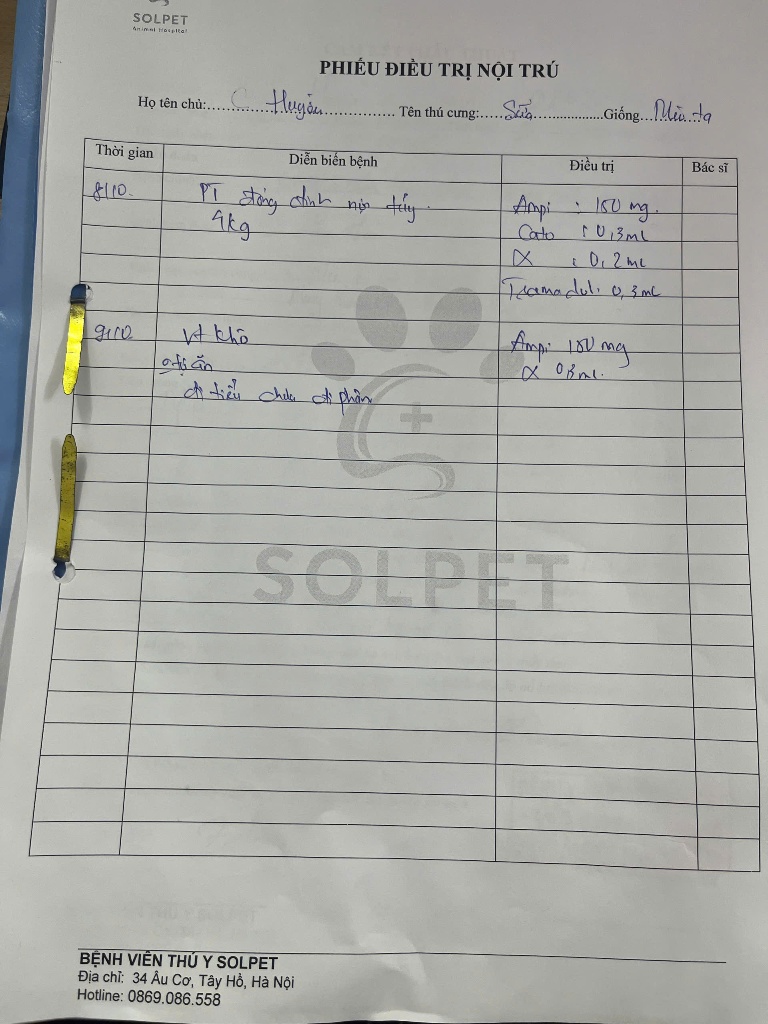 SOLPET
Animal Hospital
PHIẾU ĐIỀU TRỊ NỘI TRÚ
Họ tên chủ: C Huyền Tên thú cưng: Sữa Giống Mèo ta
Thời gian Diễn biến bệnh Điều trị Bác sĩ
8/10. PT đóng đinh nội tủy. Ampi : 150 mg.
4kg Cato : 0,3ml
α : 0,2ml
Tramadol: 0,3ml
9/10 Vt khô Ampi 150 mg
ăn α 0,3ml.
đi tiểu chưa đi phân
SOLPET
BỆNH VIỆN THÚ Y SOLPET
Địa chỉ: 34 Âu Cơ, Tây Hồ, Hà Nội
Hotline: 0869.086.558